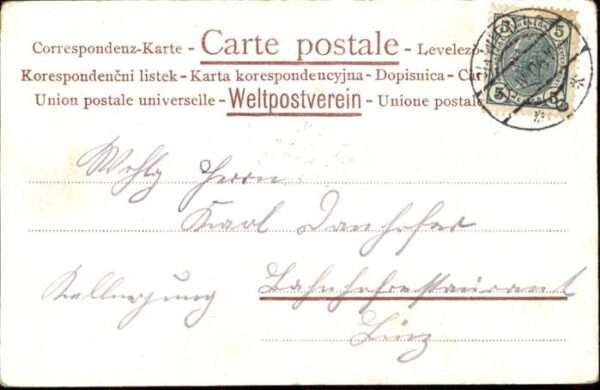 Correspondenz-Karte - Carte postale - Levelezö-
Korespondenční listek - Karta korespondencyjna - Dopisnica - Ca
Union postale universelle - Weltpostverein - Unione postale
5 5
5 5
Wohlg Herrn
Karl Danhofer
Kellnerjung Bahnhofrestaurant
Linz